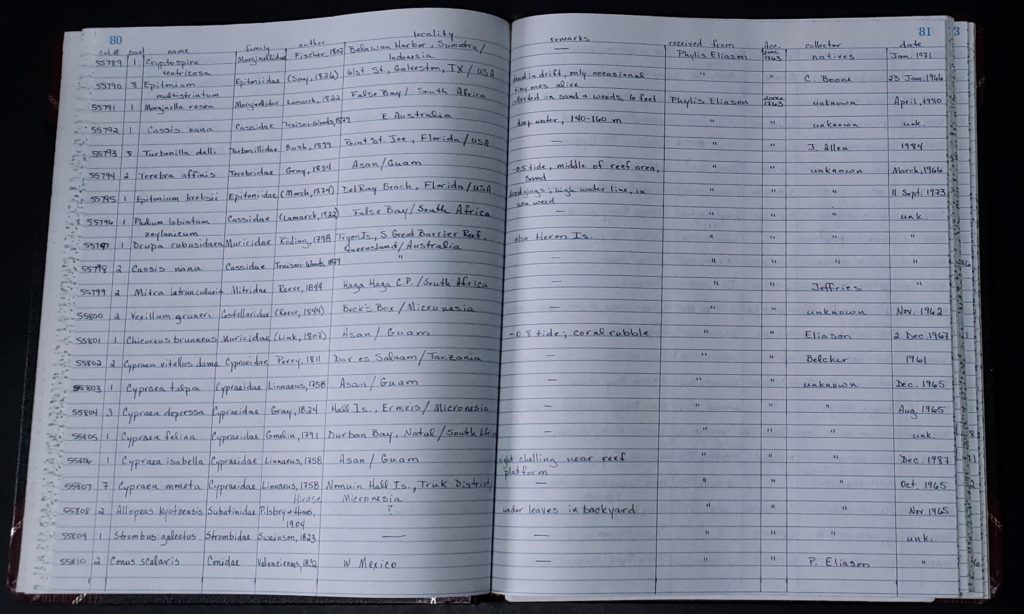 80
81
3
cat # name family author locality remarks received from Acc. collector date
55789 1 Cryptospira ventricosa Marginellidae Fischer, 1807 Belawan Harbor, Sumatra/ — Phylis Eliason 1763 natives Jan. 1971
55790 8 Epitonium multistriatum Epitoniidae (Say, 1826) 61st St., Galveston, TX / USA drift, only occasional alive " " C. Boone 23 Jan. 1966
55791 1 Marginella rosea Marginellidae Lamarck, 1822 False Bay / South Africa sand & weeds, 6 feet Phylis Eliason 1763 unknown April, 1980
55792 1 Cassis nana Cassidae Tenison-Woods, 1879 E. Australia water, 140-160 m " " unknown unk.
55793 8 Turbonilla dalli Turbonillidae Bush, 1899 Point St. Joe, Florida / USA — " " J. Allen 1984
55794 2 Terebra affinis Terebridae Gray, 1834 Asan / Guam tide, middle of reef area, sand " " unknown March, 1966
55795 1 Epitonium krebsii Epitoniidae (Morch, 1874) DelRay Beach, Florida / USA high water line, in sea weed " " " 11 Sept. 1973
55796 1 Phalium labiatum zeylanicum Cassidae (Lamarck, 1822) False Bay / South Africa — " " " unk.
55797 1 Drupa rubusidaea Muricidae Roding, 1798 Tryon Is., S. Great Barrier Reef, Queensland / Australia also Heron Is. " " " "
55798 2 Cassis nana Cassidae Tenison-Woods, 1879 " — " " " "
55799 2 Mitra Mitridae Reeve, 1844 Haga Haga C.P. / South Africa — " " Jeffries "
55800 2 Vexillum gruneri Costellariidae (Reeve, 1844) Beck's Box / Micronesia — " " unknown Nov. 1962
55801 1 Chicoreus brunneus Muricidae (Link, 1807) Asan / Guam -0.8 tide; coral rubble " " Eliason 2 Dec. 1967
55802 2 Cypraea vitellus dama Cypraeidae Perry, 1811 Dar es Salaam / Tanzania — " " Belcher 1961
55803 1 Cypraea talpa Cypraeidae Linnaeus, 1758 Asan / Guam — " " unknown Dec. 1965
55804 3 Cypraea depressa Cypraeidae Gray, 1824 Hall Is., / Micronesia — " " " Aug. 1965
55805 1 Cypraea felina Cypraeidae Gmelin, 1791 Durban Bay, Natal / South — " " " unk.
55806 1 Cypraea isabella Cypraeidae Linnaeus, 1758 Asan / Guam shelling near reef platform " " " Dec. 1987
55807 7 Cypraea Cypraeidae Linnaeus, 1758 Hall Is., Truk District, Micronesia — " " " Oct. 1965
55808 2 Allopeas kyotoensis Subulinidae Pilsbry & Hirase, 1904 ? under leaves in backyard " " " Nov. 1965
55809 1 Strombus galeatus Strombidae Swainson, 1823 — — " " " unk.
55810 2 Conus scalaris Conidae Valenciennes, 1832 W Mexico — " " P. Eliason "